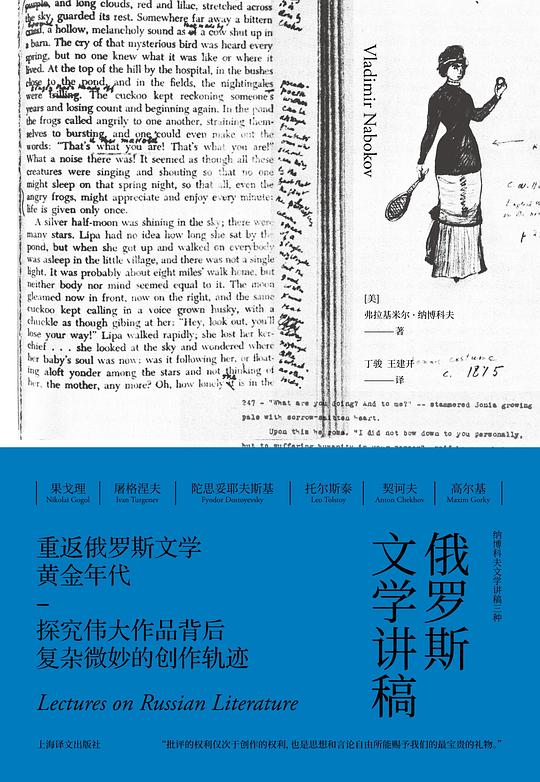 purple, and long clouds, red and lilac, stretched across
the sky, guarded its rest. Somewhere far away a bittern
cried, a hollow, melancholy sound as of a cow shut up in
a barn. The cry of that mysterious bird was heard every
spring, but no one knew what it was like or where it
lived. At the top of the hill by the hospital, in the bushes
close to the pond, and in the fields, the nightingales
were trilling. The cuckoo kept reckoning someone's
years and losing count and beginning again. In the pond
the frogs called angrily to one another, straining them-
selves to bursting, and one could even make out the
words: "That's what you are! That's what you are!"
What a noise there was! It seemed as though all these
creatures were singing and shouting so that no one
might sleep on that spring night, so that all, even the
angry frogs, might appreciate and enjoy every minute:
life is given only once.
A silver half-moon was shining in the sky; there were
many stars. Lipa had no idea how long she sat by the
pond, but when she got up and walked on everybody
was asleep in the little village, and there was not a single
light. It was probably about eight miles' walk home, but
neither body nor mind seemed equal to it. The moon
gleamed now in front, now on the right, and the same
cuckoo kept calling in a voice grown husky, with a
chuckle as though gibing at her: "Hey, look out, you'll
lose your way!" Lipa walked rapidly; she lost her ker-
chief . . . she looked at the sky and wondered where
her baby's soul was now: was it following her, or float-
ing aloft yonder among the stars and not thinking of
her, the mother, any more? Oh, how lonely it is in the
Vladimir Nabokov
[美]
弗拉基米尔·纳博科夫
著
丁骏 王建开
译
costume
c. 1875
247 - "What are you doing? And to me?" -- stammered Jonia growing
pale with sorrow-smitten heart.
Upon this he rose. "I did not bow down to you personally,
果戈理
Nikolai Gogol
屠格涅夫
Ivan Turgenev
陀思妥耶夫斯基
Fyodor Dostoyevsky
托尔斯泰
Leo Tolstoy
契诃夫
Anton Chekhov
高尔基
Maxim Gorky
重返俄罗斯文学
黄金年代
探究伟大作品背后
复杂微妙的创作轨迹
Lectures on Russian Literature
纳博科夫文学讲稿三种
俄罗斯
文学讲稿
上海译文出版社
“批评的权利仅次于创作的权利，也是思想和言论自由所能赐予我们的最宝贵的礼物。”